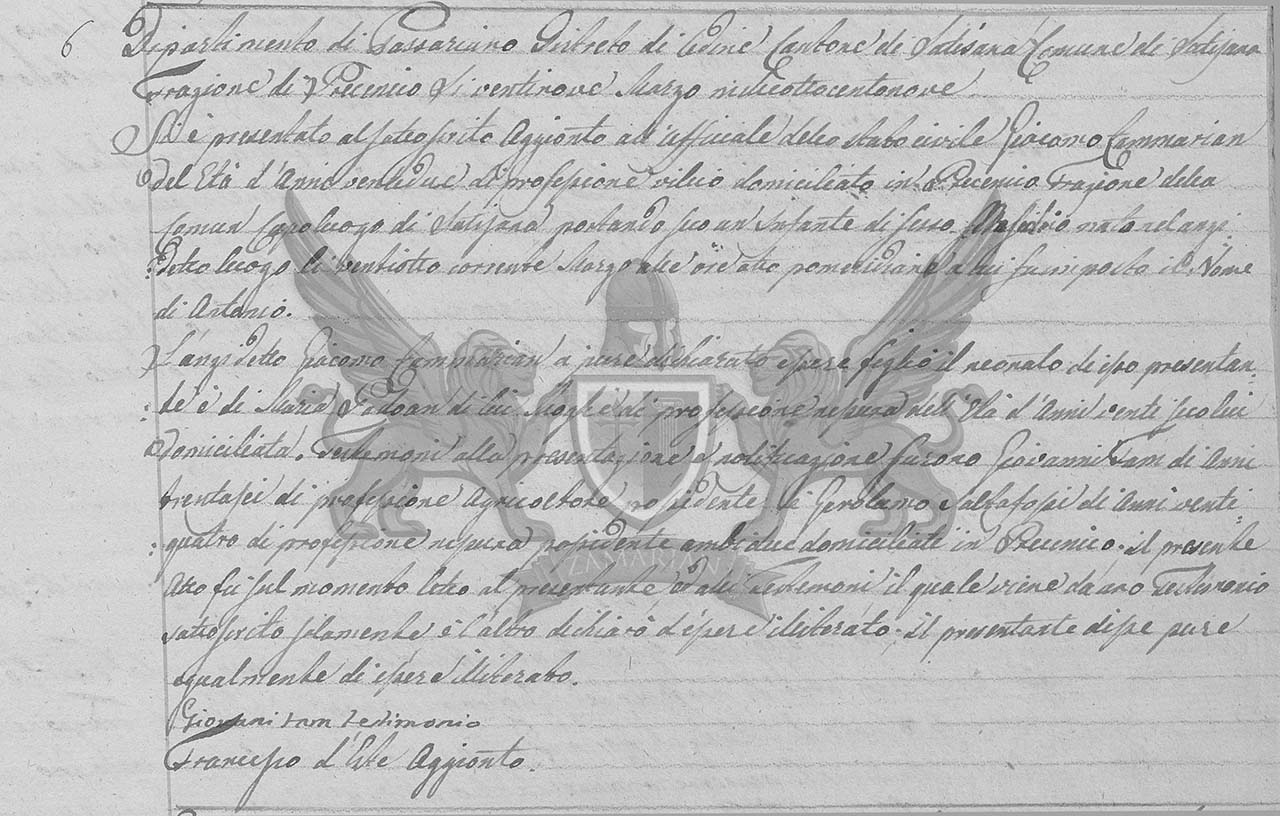 6 Dipartimento di Passariano Distreto di Udine Cantone di Latisana Comune di Latisana
Frazione di Precenico Li ventinove Marzo milleottocentonove
Si è presentato al sottoscrito Aggionto all'ufficiale dello stato civile Giacomo Cammarian
del Età d'Anni ventidue di professione vilico domiciliato in Precenico Frazione della
Comun Capoluogo di Latisana portando seco un Infante di sesso nato nel anzi
:detto luogo li ventiotto corrente Marzo alle ore otto pomeridiane a lui fu imposto il Nome
di Antonio.
L'anzidetto Giacomo Cammarian a pure dichiarato essere figlio il neonato di esso presentan:
:de è di Maria di lui Moglie di professione nessuna del Età d'Anni venti seco lui
domiciliata. Testemoni alla presentazione e notificazione furono Giovanni Tam di Anni
trentasei di professione Agricoltore possidente di Gerolamo di Anni venti:
:quatro di professione nessuna possidente ambidue domiciliati in Precenico. il presente
Atto fù sul momento letto al presentante è alli Testemoni il quale viene da uno Testimonio
sottoscrito solamente è l'altro dichiarò d'essere illiterato; il presentante disse pure
egualmente di essere illiterato.
Giovani tam testimonio
Francesco d'Este Aggionto.
ZAMARIAN